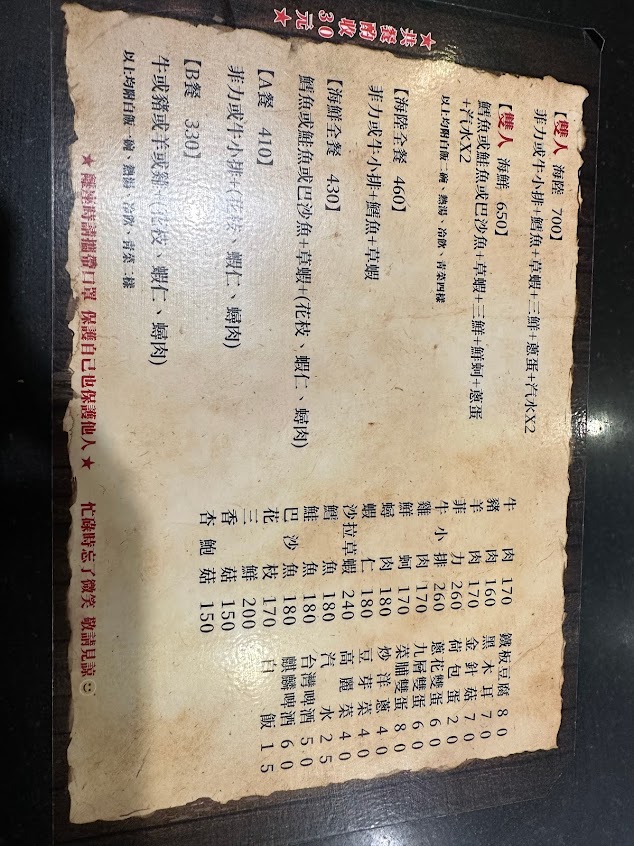 【雙人 海陸 700】
菲力或牛小排+鱈魚+草蝦+三鮮+蔥蛋+汽水X2
【雙人 海鮮 650】
鱈魚或鮭魚或巴沙魚+草蝦+三鮮+鮮蚵+蔥蛋
+汽水X2
以上均附白飯二碗、熱湯、冷飲、青菜四樣
【海陸全餐 460】
菲力或牛小排+鱈魚+草蝦
【海鮮全餐 430】
鱈魚或鮭魚或巴沙魚+草蝦+(花枝、蝦仁、蟳肉)
【A餐 410】
菲力或牛小排+(花枝、蝦仁、蟳肉)
【B餐 330】
牛或豬或羊或雞+(花枝、蝦仁、蟳肉)
以上均附白飯一碗、熱湯、冷飲、青菜二樣
★共餐酌收30元★
牛肉 170
豬肉 160
羊肉 170
菲力 260
牛小排 260
雞肉 170
鮮蚵 170
蟳肉 180
蝦仁 180
沙拉草蝦 240
鱈魚 180
鮭魚 180
巴沙魚 180
花枝 170
三鮮 200
香菇 150
杏鮑菇 150
鐵板豆腐 80
黑木耳 70
金針菇 70
荷包蛋 20
蔥花雙蛋 60
九層雙蛋 60
菜脯雙蛋 80
炒洋蔥 40
豆芽菜 40
高麗菜 40
汽水 25
台灣啤酒 50
麒麟啤酒 60
白飯 15
★ 離座時請攜帶口罩 保護自己也保護他人 ★ 忙碌時忘了微笑 敬請見諒